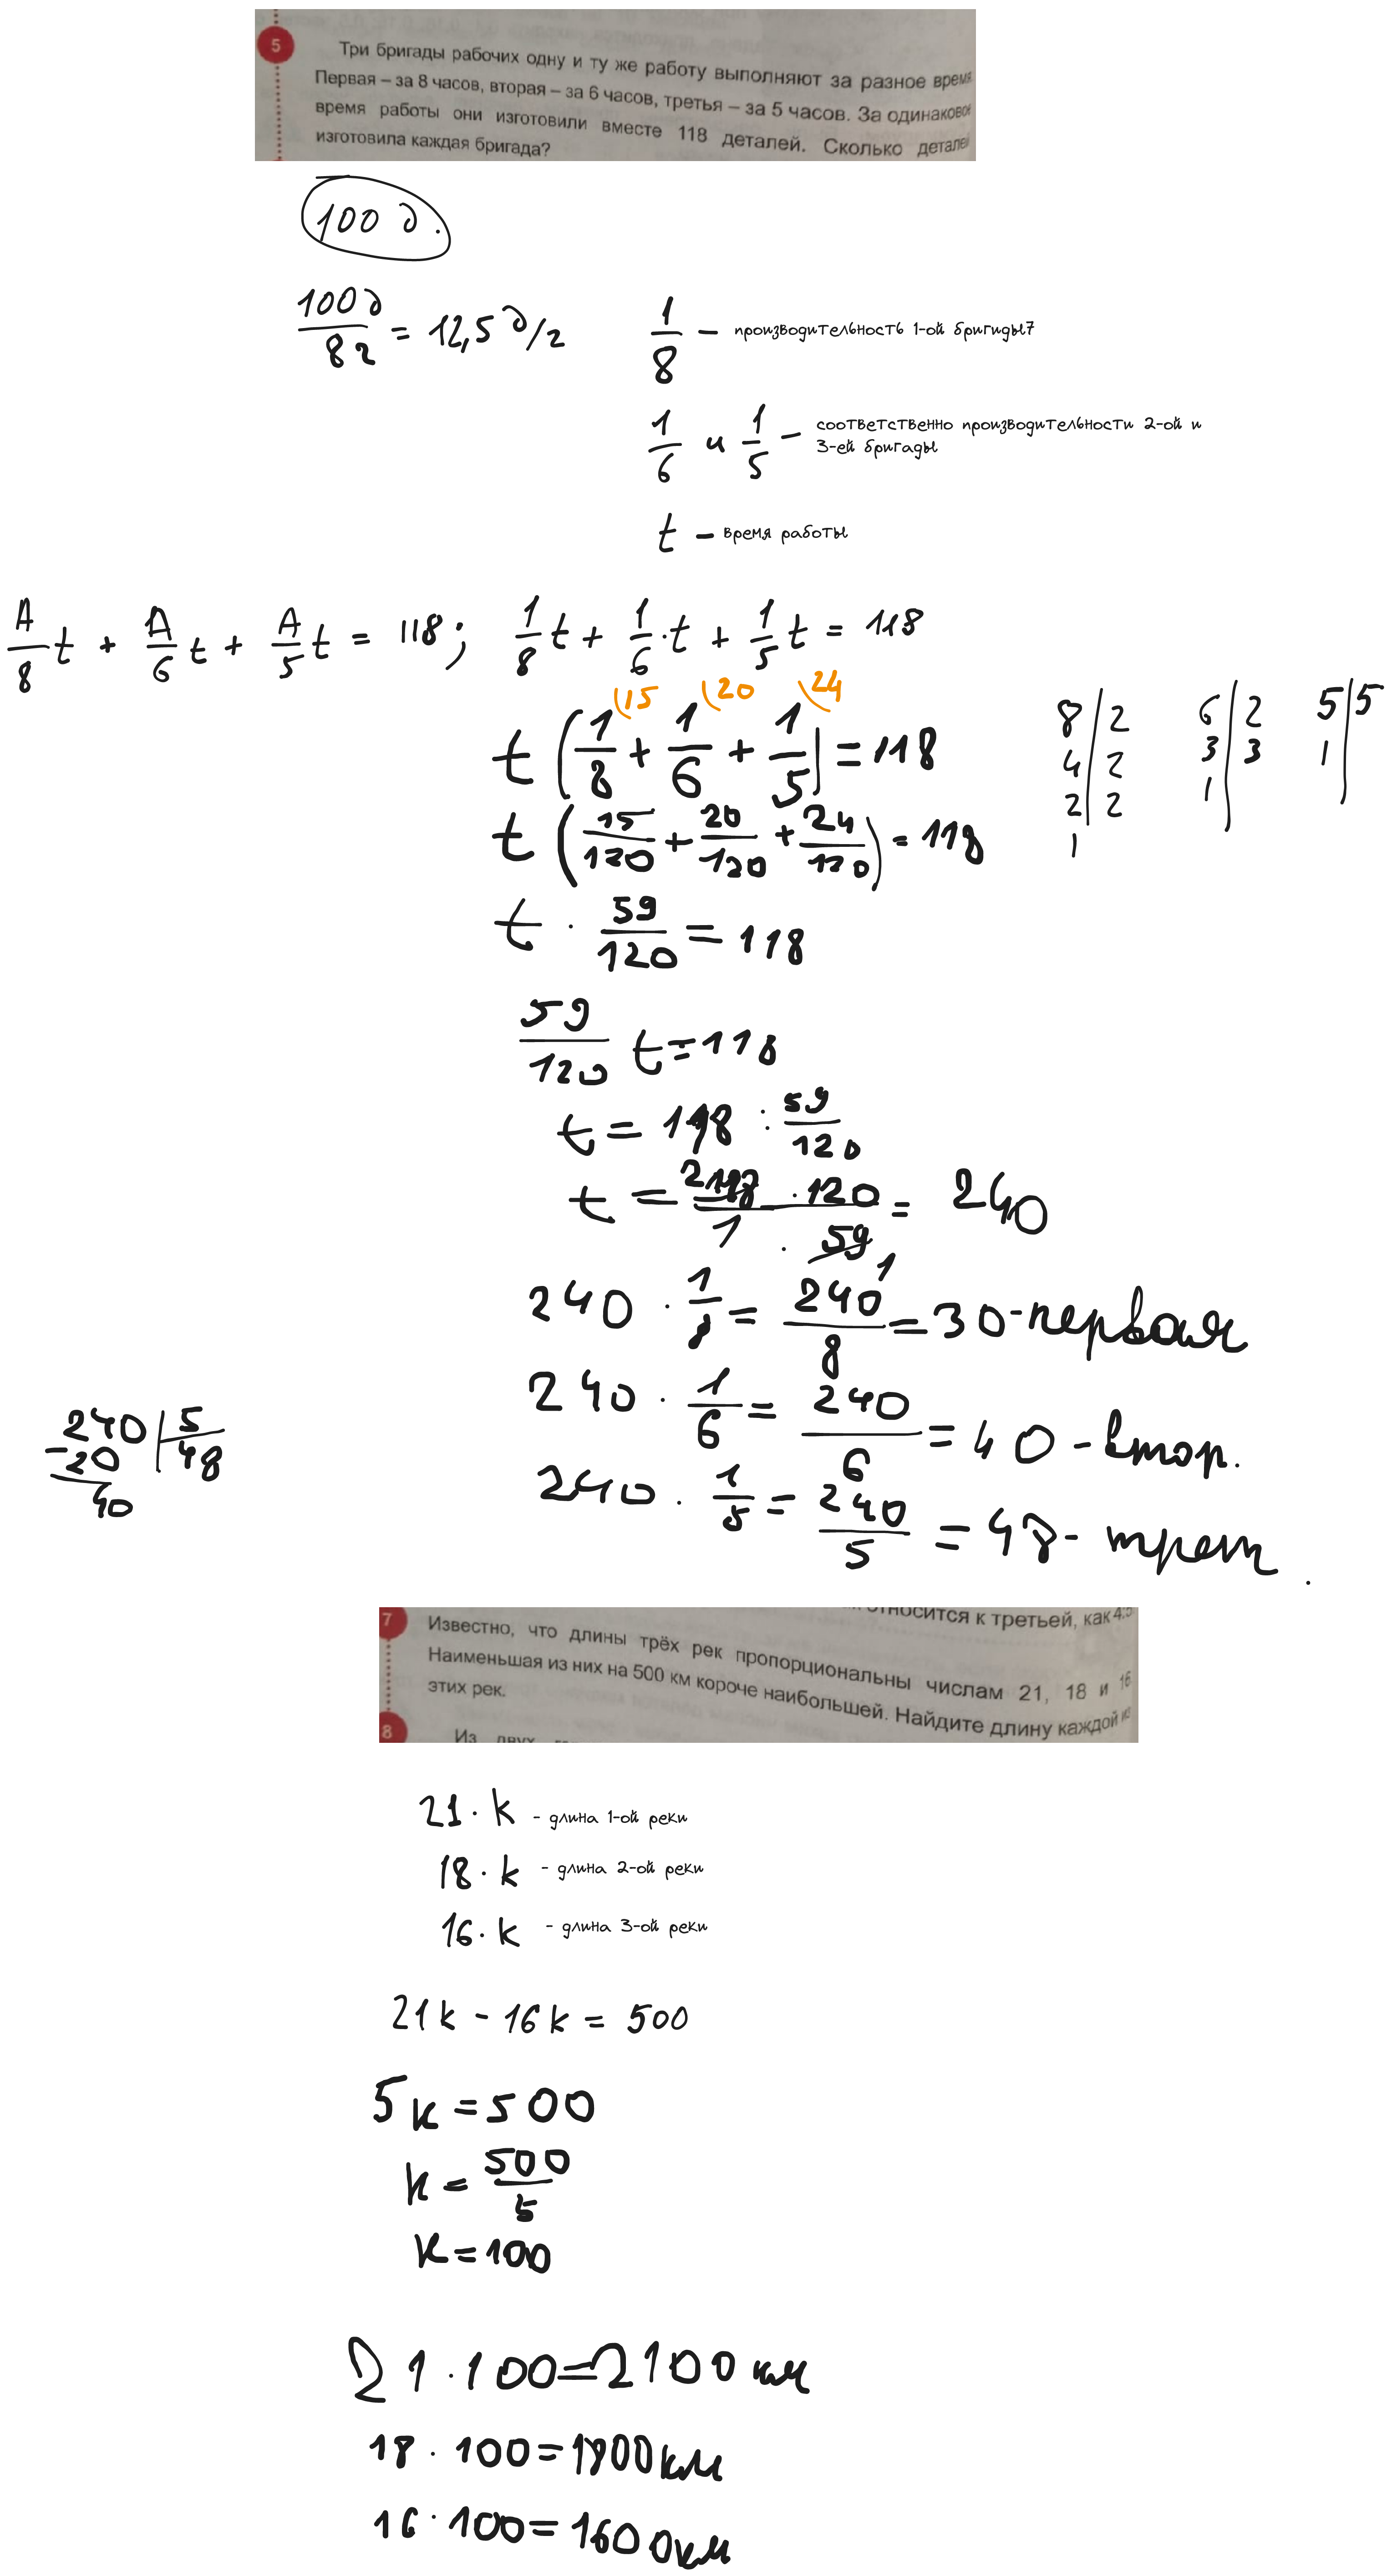 5
Три бригады рабочих одну и ту же работу выполняют за разное время
Первая – за 8 часов, вторая – за 6 часов, третья – за 5 часов. За одинаковое
время работы они изготовили вместе 118 деталей. Сколько деталей
изготовила каждая бригада?
100 д.
100д/8г = 12,5 д/г
1/8 — производительность 1-ой бригиды7
1/6 и 1/5 — соответственно производительности 2-ой и
3-ей бригады
t — время работы
A/8 t + A/6 t + A/5 t = 118; 1/8 t + 1/6 · t + 1/5 t = 118
15 20 24
t (1/8 + 1/6 + 1/5) = 118
8 | 2 6 | 2 5 | 5
4 | 2 3 | 3 1 |
2 | 2 1 |
1
t (15/120 + 20/120 + 24/120) = 118
t · 59/120 = 118
59/120 t = 118
t = 118 : 59/120
t = 2 118 · 120 / 1 · 59 1 = 240
240 · 1/8 = 240/8 = 30 - первая
240 · 1/6 = 240/6 = 40 - втор.
240 | 5
- 20 | 48
40
240 · 1/5 = 240/5 = 48 - трет.
относится к третьей, как 4:5
7
Известно, что длины трёх рек пропорциональны числам 21, 18 и 16
Наименьшая из них на 500 км короче наибольшей. Найдите длину каждой из
этих рек.
8
Из двух
21 · k - длина 1-ой реки
18 · k - длина 2-ой реки
16 · k - длина 3-ой реки
21k - 16k = 500
5k = 500
k = 500/5
k = 100
21 · 100 = 2100 км
18 · 100 = 1800 км
16 · 100 = 1600 км